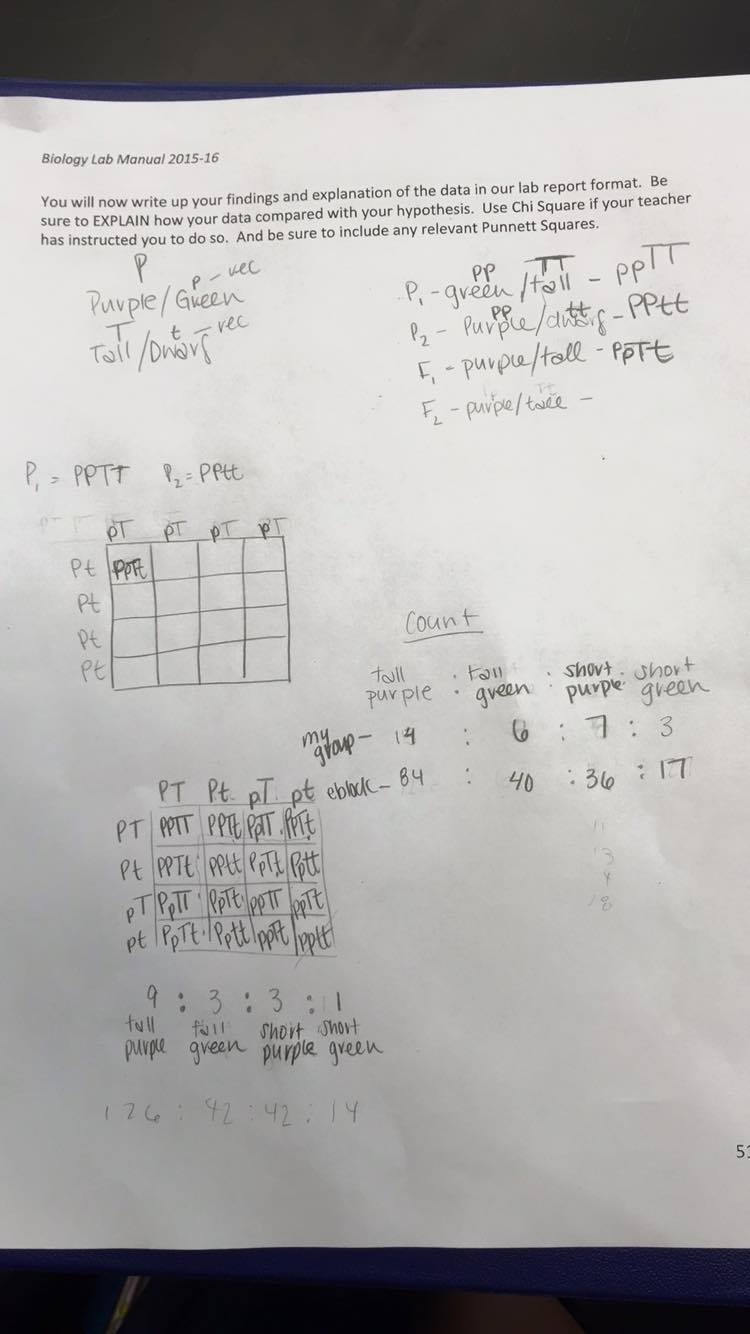 Biology Lab Manual 2015-16
You will now write up your findings and explanation of the data in our lab report format. Be
sure to EXPLAIN how your data compared with your hypothesis. Use Chi Square if your teacher
has instructed you to do so. And be sure to include any relevant Punnett Squares.
P p - rec
Purple/Green
T t - rec
Tall/Dwarf
pp TT
P1 - green/tall - ppTT
PP tt
P2 - Purple/dwarf - PPtt
F1 - purple/tall - PpTt
F2 - purple/tall -
P1 = PPTT P2 = PPtt
pT pT pT pT
Pt PpTt
Pt
Pt
Pt
Count
tall : tall : short : short
purple : green : purple : green
my group - 14 : 6 : 7 : 3
eblock - 84 : 40 : 36 : 17
PT Pt pT pt
PT PPTT PPTt PpTT PpTt
Pt PPTt PPtt PpTt Pptt
pT PpTT PpTt ppTT ppTt
pt PpTt Pptt ppTt pptt
9 : 3 : 3 : 1
tall tall short short
purple green purple green
126 : 42 : 42 : 14
51